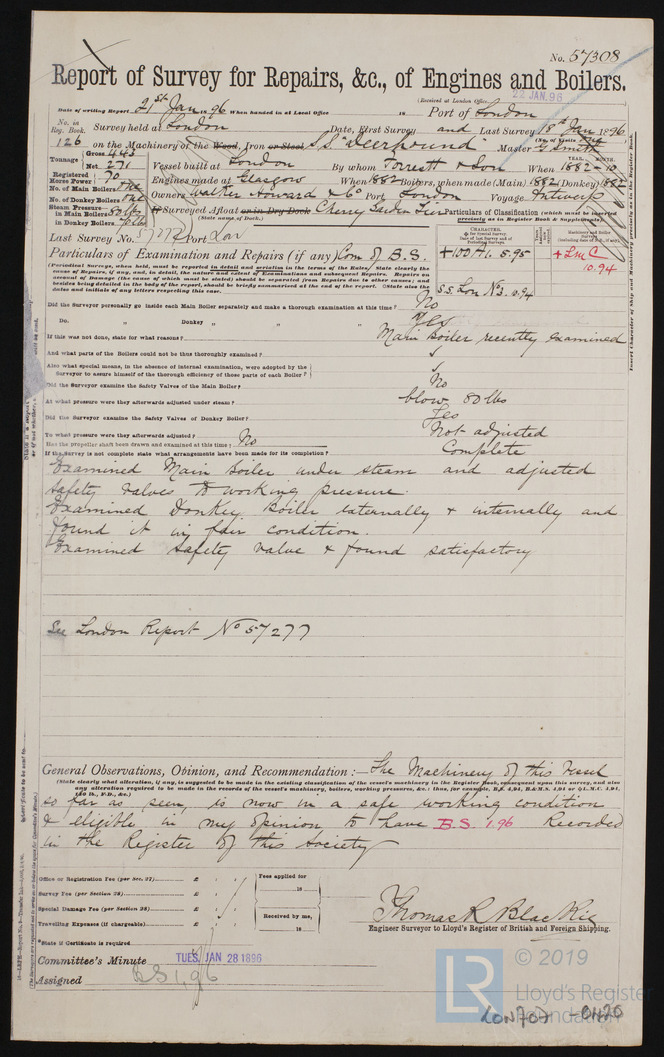 No. 57308
Report of Survey for Repairs, &c., of Engines and Boilers.
(Received at London Office 22 JAN. 96
Date of writing Report 21st Jan 1896 When handed in at Local Office 18 Port of London
No. in Reg. Book. Survey held at London Date, First Survey and Last Survey 18th Jan 1896
(No. of Visits one)
126 on the Machinery of the Wood, Iron or Steel S.S. "Deerhound" Master G Smith
Tonnage Gross 443 Net 271
Vessel built at London By whom Forrestt & Son When 1882-10
YEAR. MONTH.
Registered Horse Power 70
Engines made at Glasgow When 1882 Boilers, when made (Main) 1882 (Donkey) 1882
No. of Main Boilers one
No. of Donkey Boilers one
Owners Walker Howard & Co Port London Voyage Antwerp
Steam Pressure in Main Boilers 80 lbs
in Donkey Boilers
If Surveyed Afloat or in Dry Dock Cherry Garden Tier
(State name of Dock.)
Particulars of Classification (which must be inserted precisely as in Register Book & Supplements).
Last Survey No. Port Lon
CHARACTER.
+100A1. 5.95
S.S. Lon No3. 10.94
+LMC 10.94
Particulars of Examination and Repairs (if any) Com of B.S.
(Periodical Surveys, when held, must be reported in detail and seriatim in the terms of the Rules. State clearly the
cause of Repairs, if any, and, in detail, the nature and extent of Examinations and subsequent Repairs. Repairs on
account of Damage (the cause of which must be stated) should be separated from Repairs due to other causes; and
besides being detailed in the body of the report, should be briefly summarised at the end of the report. State also the
dates and initials of any letters respecting this case.
Did the Surveyor personally go inside each Main Boiler separately and make a thorough examination at this time? No
Do. „ Donkey „ „ „ Yes
If this was not done, state for what reasons? Main boiler recently examined
And what parts of the Boilers could not be thus thoroughly examined?
Also what special means, in the absence of internal examination, were adopted by the
Surveyor to assure himself of the thorough efficiency of those parts of each Boiler?
Did the Surveyor examine the Safety Valves of the Main Boiler? No
At what pressure were they afterwards adjusted under steam? blow 80 lbs
Did the Surveyor examine the Safety Valves of Donkey Boiler? Yes
To what pressure were they afterwards adjusted? Not adjusted
Has the propeller shaft been drawn and examined at this time? No
If the Survey is not complete state what arrangements have been made for its completion? Complete
Examined Main boiler under steam and adjusted
safety valves to working pressure.
Examined Donkey boiler externally & internally and
found it in fair condition.
Examined safety valve & found satisfactory
See London Report No 57277
General Observations, Opinion, and Recommendation:— The Machinery of this Vessel
(State clearly what alteration, if any, is suggested to be made in the existing classification of the vessel's machinery in the Register Book, consequent upon this survey, and also
any alteration required to be made in the records of the vessel's machinery, boilers, working pressures, &c.) thus, for example, B.S. 4,94, B.&M.S. 4,94 or L.M.C. 4,94,
so far as seen is now in a safe working condition
& eligible in my opinion to have B.S. 1.96 Recorded
in the Register of this Society
Office or Registration Fee (per Sec. 27) £
Survey Fee (per Section 28) £
Special Damage Fee (per Section 28) £
Travelling Expenses (if chargeable) £
Fees applied for 18
Received by me, 18
Thomas R Blackie
Engineer Surveyor to Lloyd's Register of British and Foreign Shipping.
State if Certificate is required
Committee's Minute TUES. JAN 28 1896
Assigned BS 1,96
© 2019
LR Lloyd's Register Foundation
LON707 - 0420